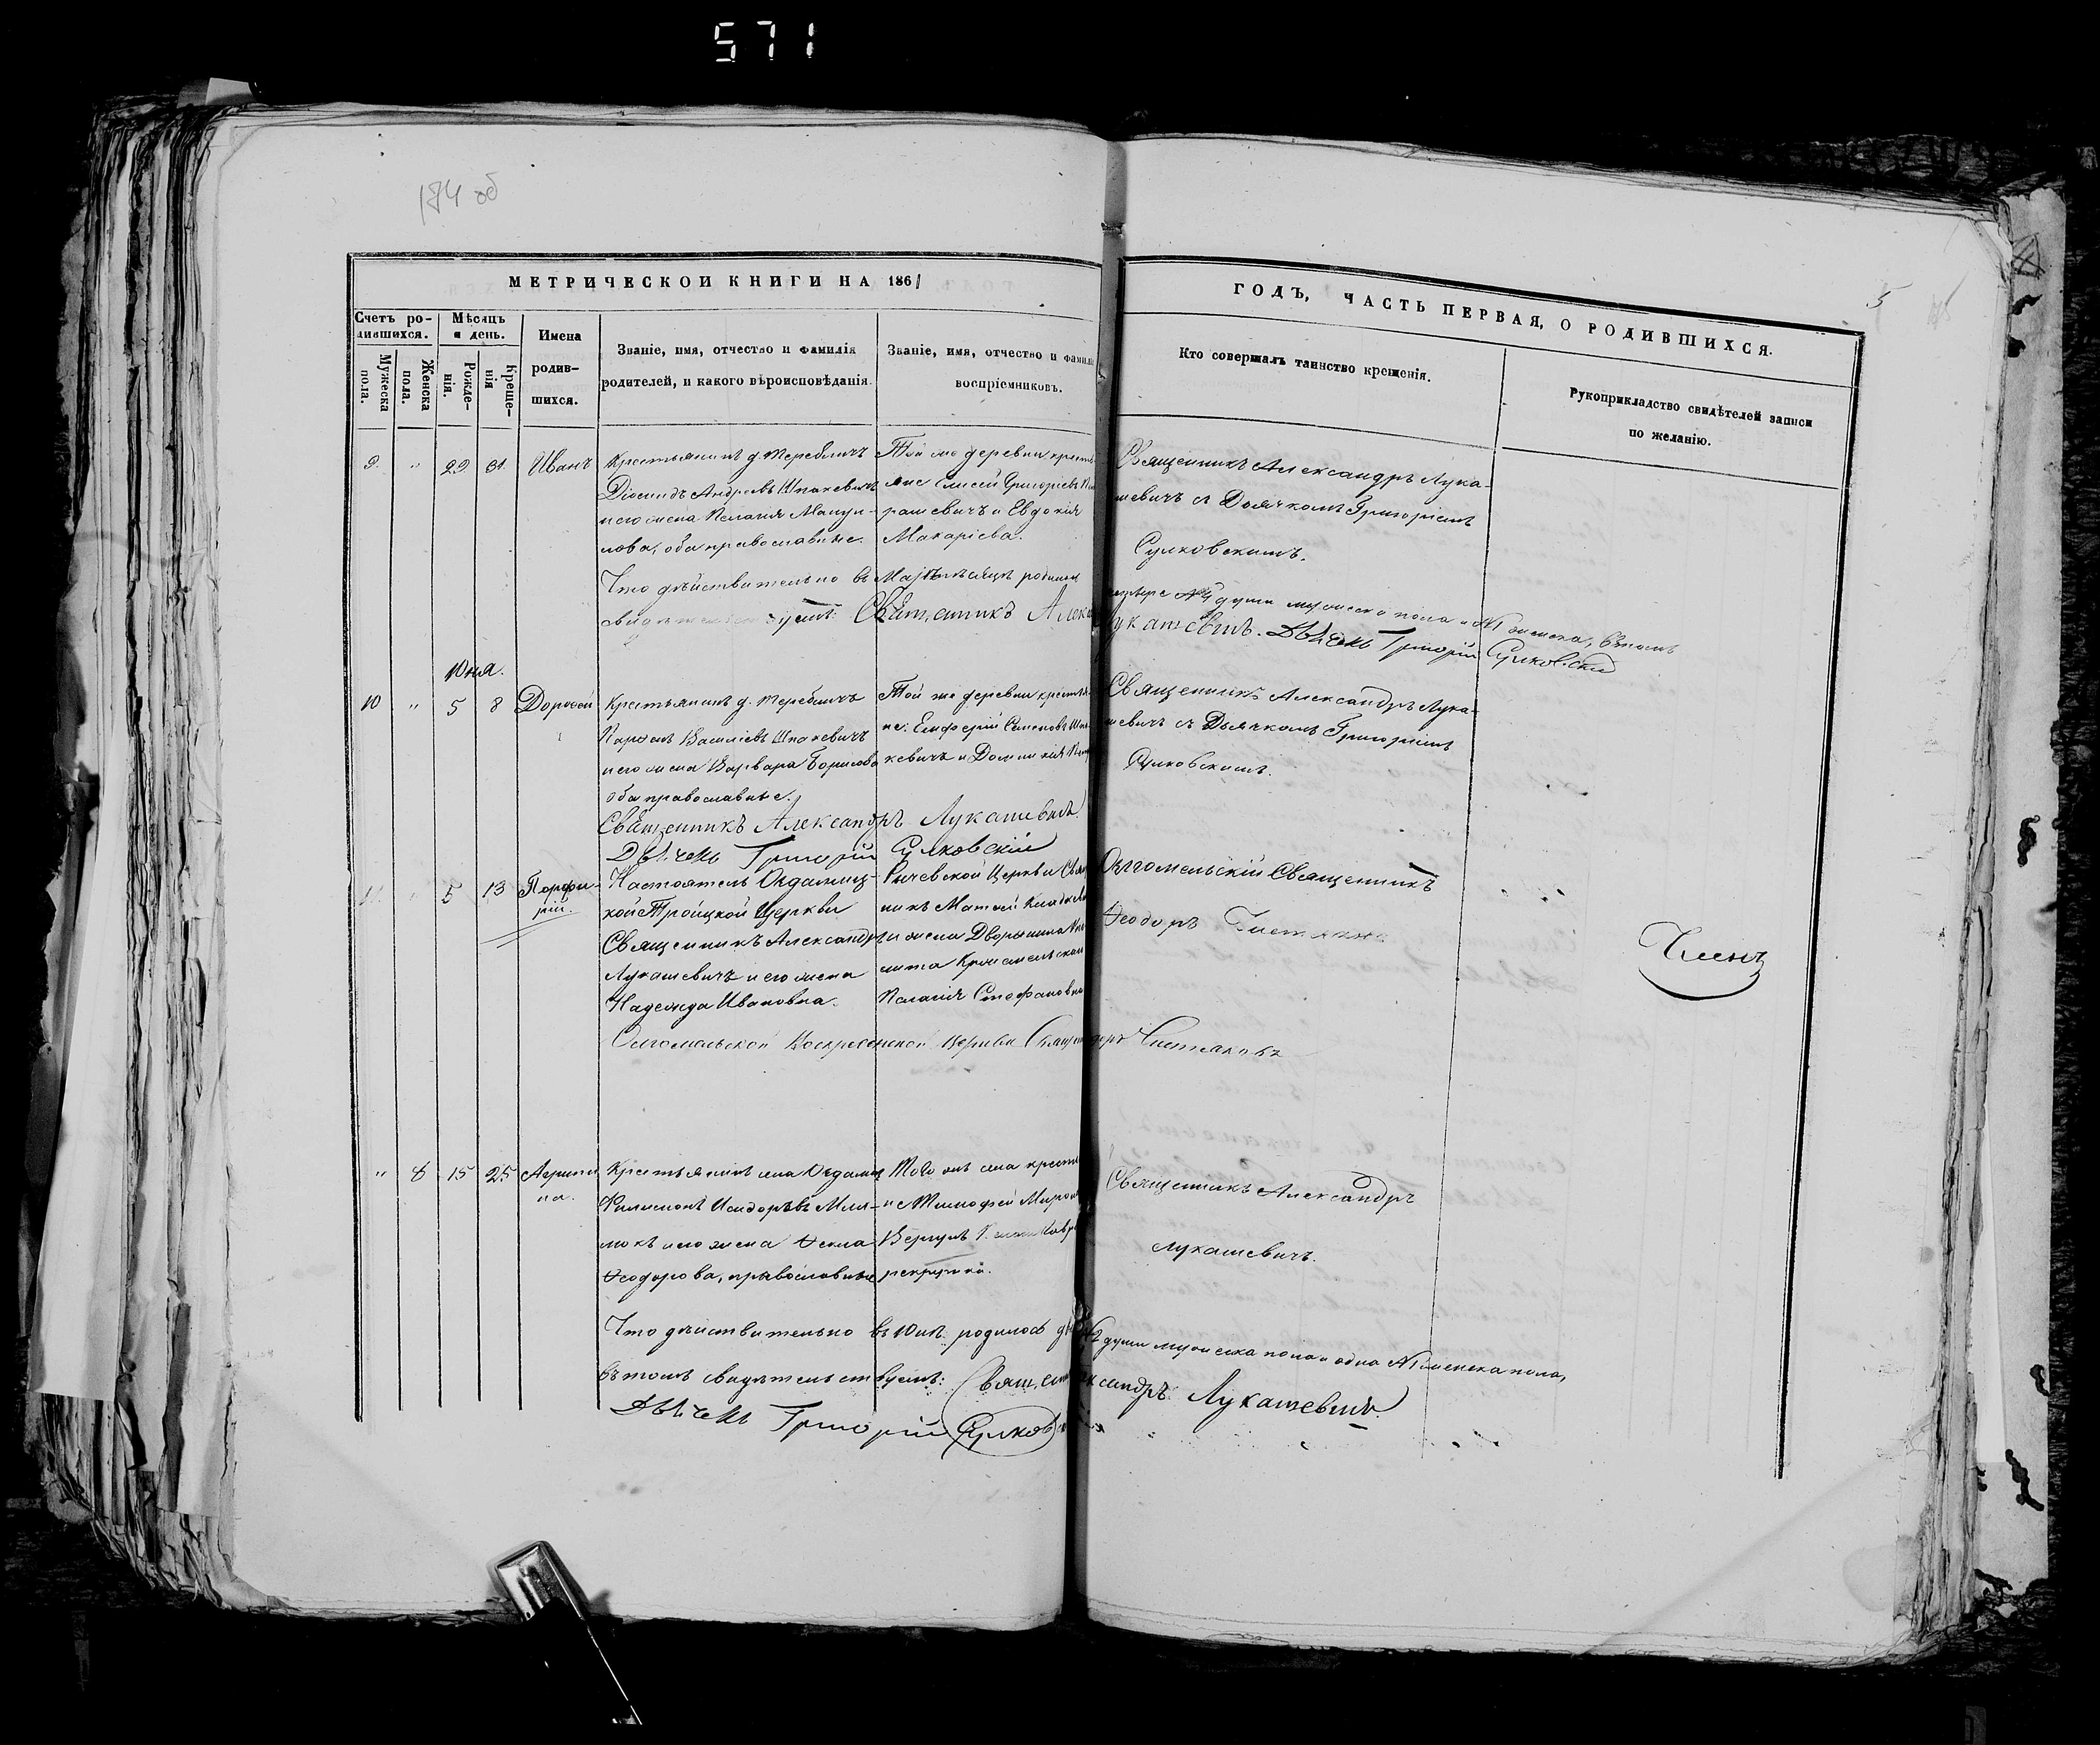 571
184 об
5
МЕТРИЧЕСКОЙ КНИГИ НА 1861
ГОДЪ, ЧАСТЬ ПЕРВАЯ, О РОДИВШИХСЯ.
Счетъ ро-
дившихся.
Мужеска
пола.
Женска
пола.
Мѣсяцъ
и день.
Рожде-
нія.
Креще-
нія
Имена
родив-
шихся.
Званіе, имя, отчество и фамилія
родителей, и какого вѣроисповѣданія.
Званіе, имя, отчество и фамилі
воспріемниковъ.
Кто совершалъ таинство крещенія.
Рукоприкладство свидѣтелей записи
по желанію.
9. " 29 31. Иванъ
Крестьянинъ д. Теребличъ
Діомидъ Андреевъ Шпакевичъ
и его жена Пелагія Мануи-
лова, оба православные.
Той же деревни крестья
не Елисей Григоріевъ
рашевичъ и Евдокія
Макаріева.
Священникъ Александръ Лука-
шевичъ съ Дьячкомъ Григоріемъ
Сулковскимъ.
Что дѣйствительно въ Маѣ мѣсяцѣ родилось
четыре №4 души мужеска пола и №1 женска, въ томъ
свидѣтельствуемъ: Священникъ Алек
Лукашевичъ. Дьячекъ Григорій Сулковскій
Юня.
10 " 5 8 Дороѳей
Крестьянинъ д. Теребличъ
Парѳенъ Василіевъ Шпакевичъ
и его жена Варвара Борисова
оба православные.
Той же деревни крестья
не: Елиферій Семеновъ Шпа
кевичъ и Домникія
Священникъ Александръ Лука-
шевичъ съ Дьячкомъ Григоріемъ
Сулковскимъ.
Священникъ Александръ Лукашевичъ
Дьячекъ Григорій Сулковскій
11. " 5 13 Порфи-
рій.
Настоятель Оздамиц-
кой Троицкой Церкви
Священникъ Александръ
Лукашевичъ и его жена
Надежда Ивановна.
Ричевской Церкви Свящ
никъ Матѳей
и жена Дворянина
Пелагія Стефановна
Олгомельскій Священникъ
Ѳеодоръ Чистяковъ
Членъ
Олгомельской Воскресенской Церкви Священ Чистяковъ
" 8 15 25 Агрипи
на.
Крестьянинъ села Оздамич
Филимонъ Исидоровъ
и его жена Ѳекла
Ѳеодорова, православные
Того жъ села крестья
не Тимофей Миронов
Вергунъ
рекрутка.
Священникъ Александръ
Лукашевичъ.
Что дѣйствительно въ Юнѣ родилось двѣ №2 души мужеска пола и одна №1 женска пола,
въ томъ свидѣтельствуемъ: Священ ксандръ Лукашевичъ.
Дьячекъ Григорій Сулков